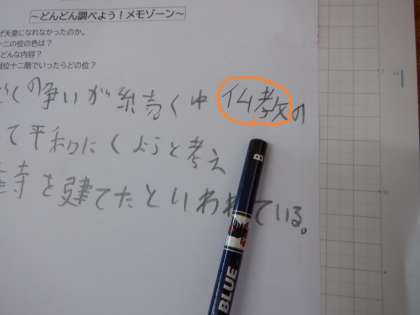 ～どんどん調べよう！メモゾーン～
天皇になれなかったのか。
十二の位の色は？
どんな内容？
冠位十二階でいったらどの位？
の争いが続く中 仏教の
て平和にしようと考え
寺を建てたといわれている。
B
BLUE